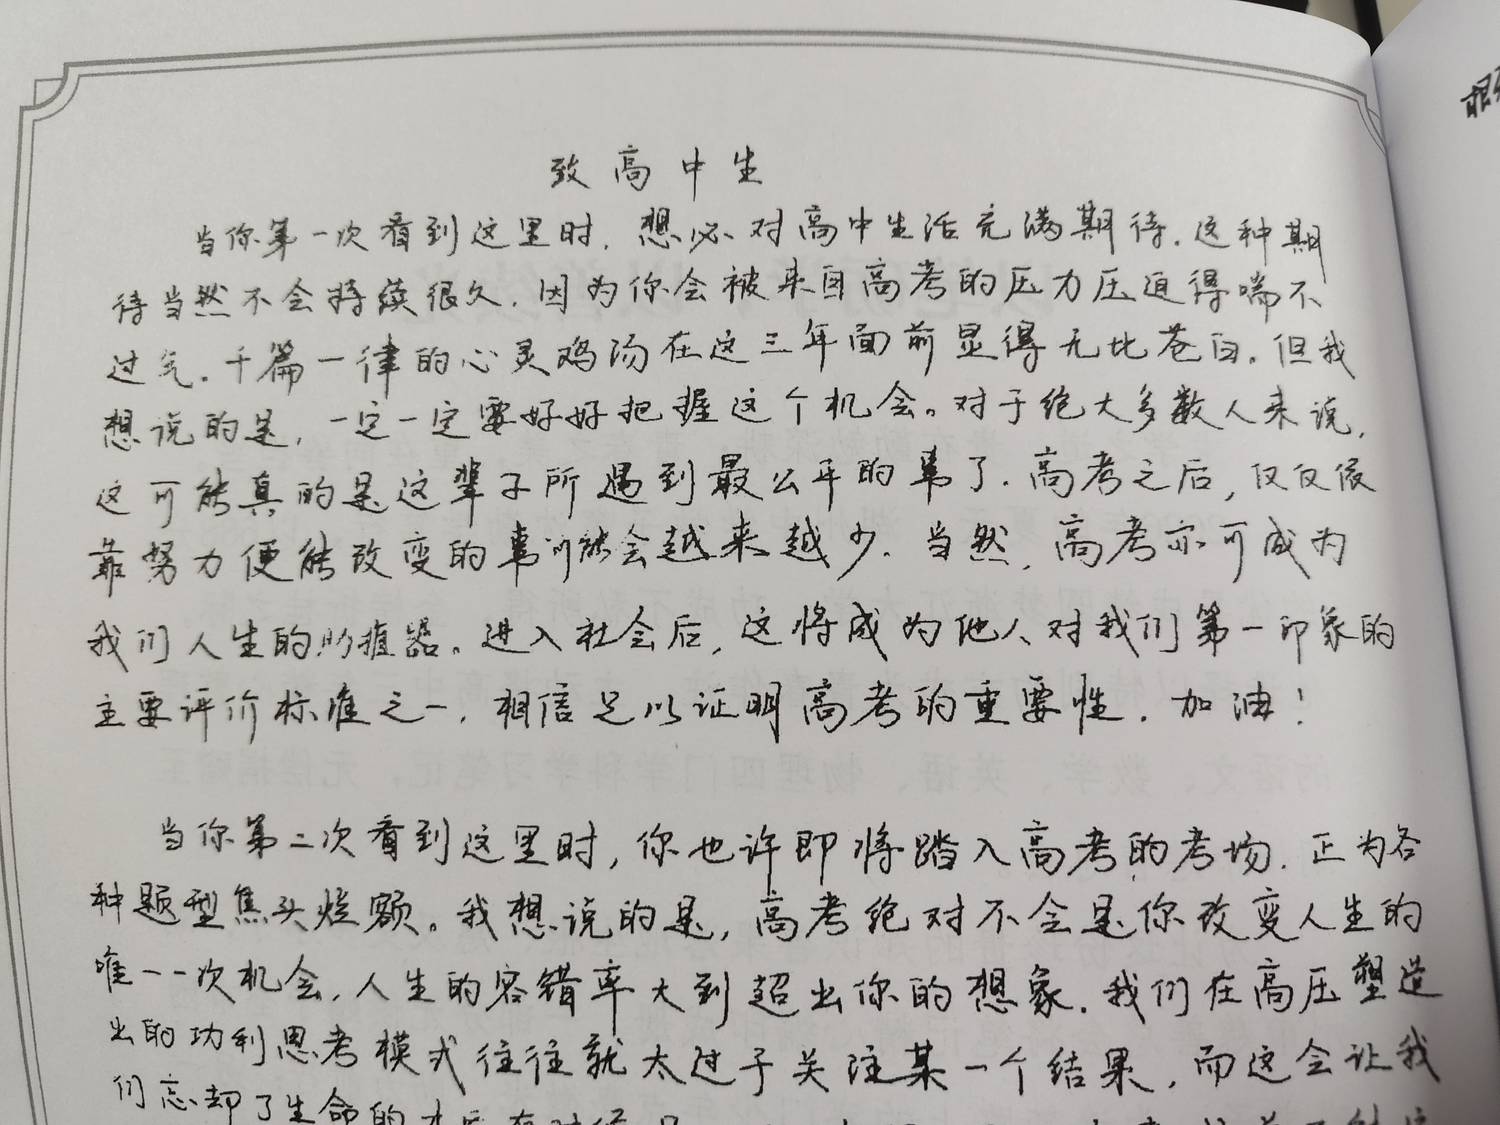 致高中生
当你第一次看到这里时，想必对高中生活充满期待．这种期
待当然不会持续很久．因为你会被来自高考的压力压迫得喘不
过气．千篇一律的心灵鸡汤在这三年面前显得无比苍白．但我
想说的是，一定一定要好好把握这个机会。对于绝大多数人来说，
这可能真的是这辈子所遇到最公平的事了．高考之后，仅仅依
靠努力便能改变的事可能会越来越少．当然，高考亦可成为
我们人生的助推器。进入社会后，这将成为他人对我们第一印象的
主要评价标准之一，相信足以证明高考的重要性．加油！
当你第二次看到这里时，你也许即将踏入高考的考场．正为各
种题型焦头烂额。我想说的是，高考绝对不会是你改变人生的
唯一一次机会，人生的容错率大到超出你的想象．我们在高压塑造
出的功利思考模式往往就太过于关注某一个结果，而这会让我
们忘却了生命的